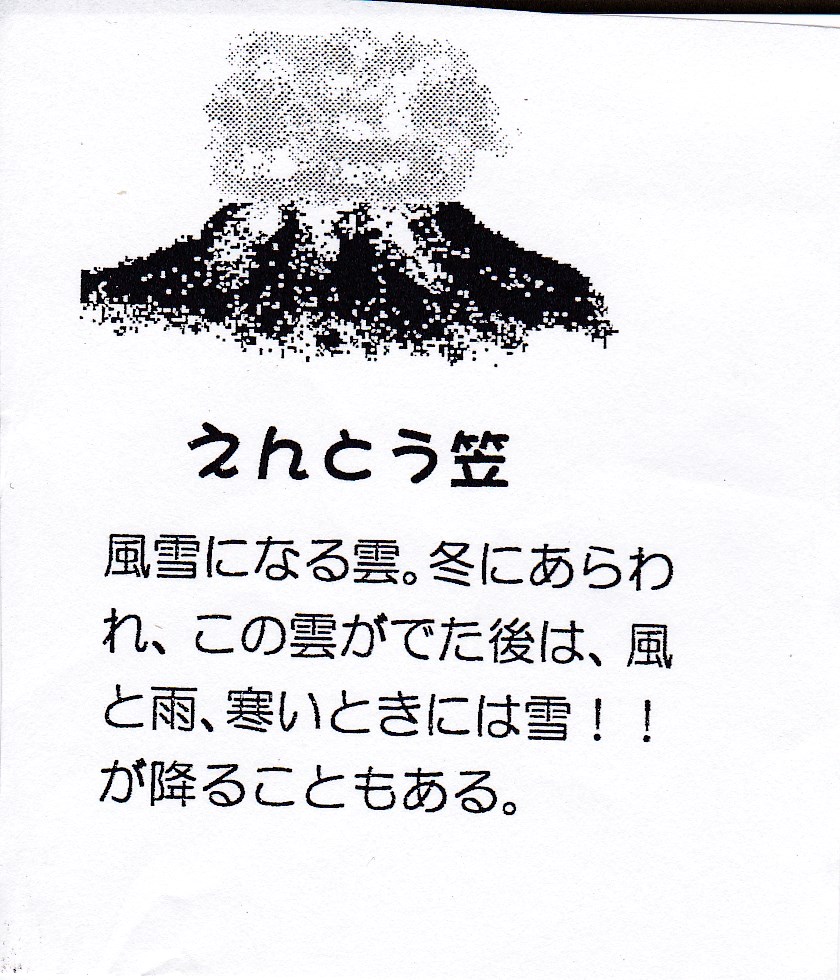 えんとう笠
風雪になる雲。冬にあらわ
れ、この雲がでた後は、風
と雨、寒いときには雪！！
が降ることもある。